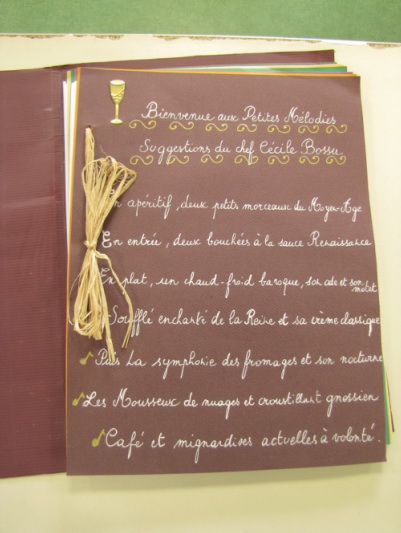 Bienvenue aux Petites Mélodies
Suggestions du chef Cécile Bossu
En apéritif, deux petits morceaux du Moyen-Age
En entrée, deux bouchées à la sauce Renaissance
En plat, un chaud-froid baroque, son ode et son
motet
Soufflé enchanté de la Reine et sa crème classique
Puis La symphonie des fromages et son nocturne
Les Mousseux de nuages et croustillant gnossien
Café et mignardises actuelles à volonté.